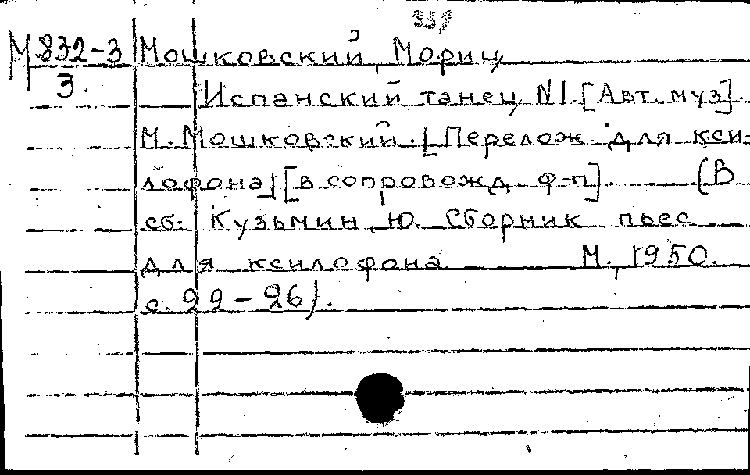 359
М 832-3 Мошковский, Мориц
3. Испанский танец N1 [Авт. муз]
М. Мошковский. [Перелож. для кси-
лофона] [в сопровожд. ф-п]. (В
сб. Кузьмин, Ю. Сборник пьес
для ксилофона М., 1950.
с. 22-26).